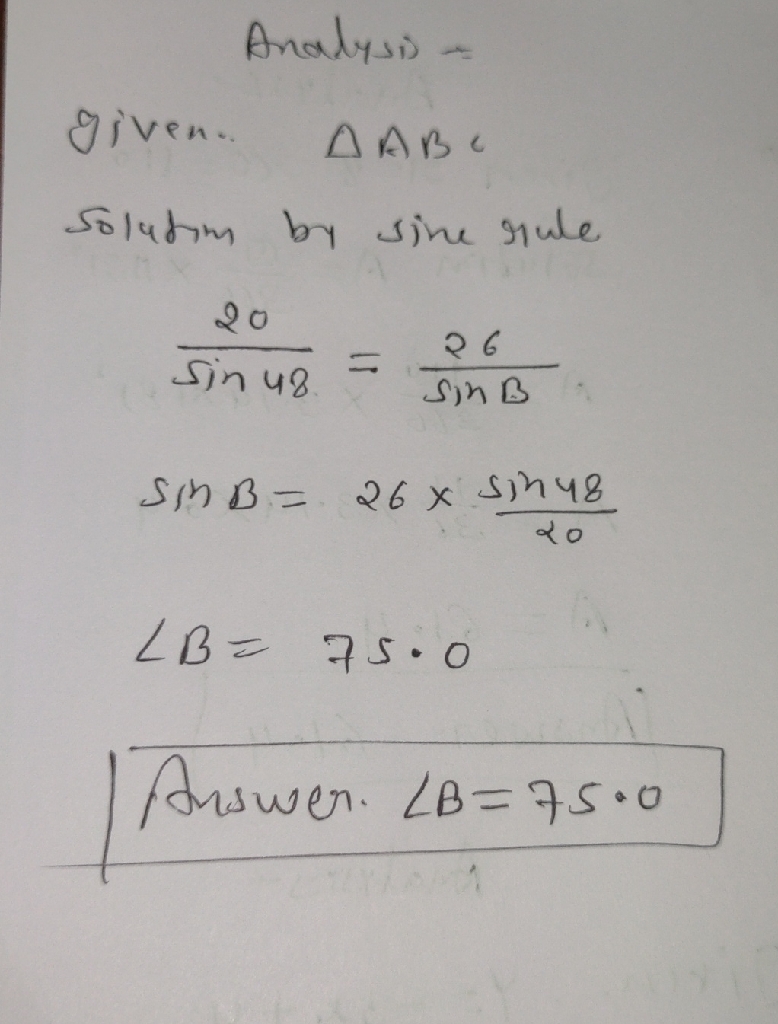 Analysis -
given.. Δ ABC
Solution by sine rule
20 / Sin 48 = 26 / Sin B
Sin B = 26 × Sin 48 / 20
∠B = 75.0
Answer. ∠B = 75.0